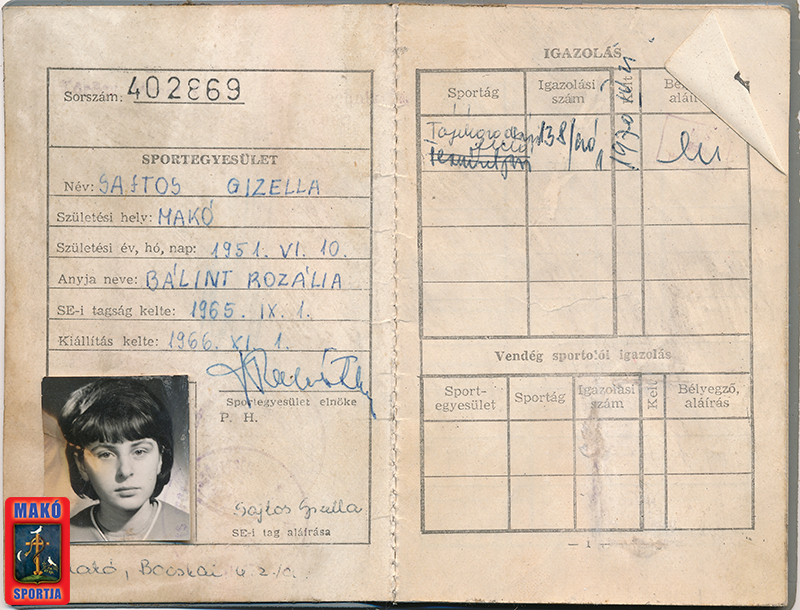 Sorszám: 402869
SPORTEGYESÜLET
Név: SAJTOS GIZELLA
Születési hely: MAKÓ
Születési év, hó, nap: 1951. VI. 10.
Anyja neve: BÁLINT ROZÁLIA
SE-i tagság kelte: 1965. IX. 1.
Kiállítás kelte: 1966. XI. 1.
Sportegyesület elnöke
P. H.
Sajtos Gizella
SE-i tag aláírása
Makó, Bocskai u. 2
MAKÓ
SPORTJA
IGAZOLÁS
Sportág Igazolási szám Kelt
138/eró 1970
Vendég sportolói igazolás
Sport-egyesület Sportág Igazolási szám Kelt Bélyegző, aláírás
— 1 —